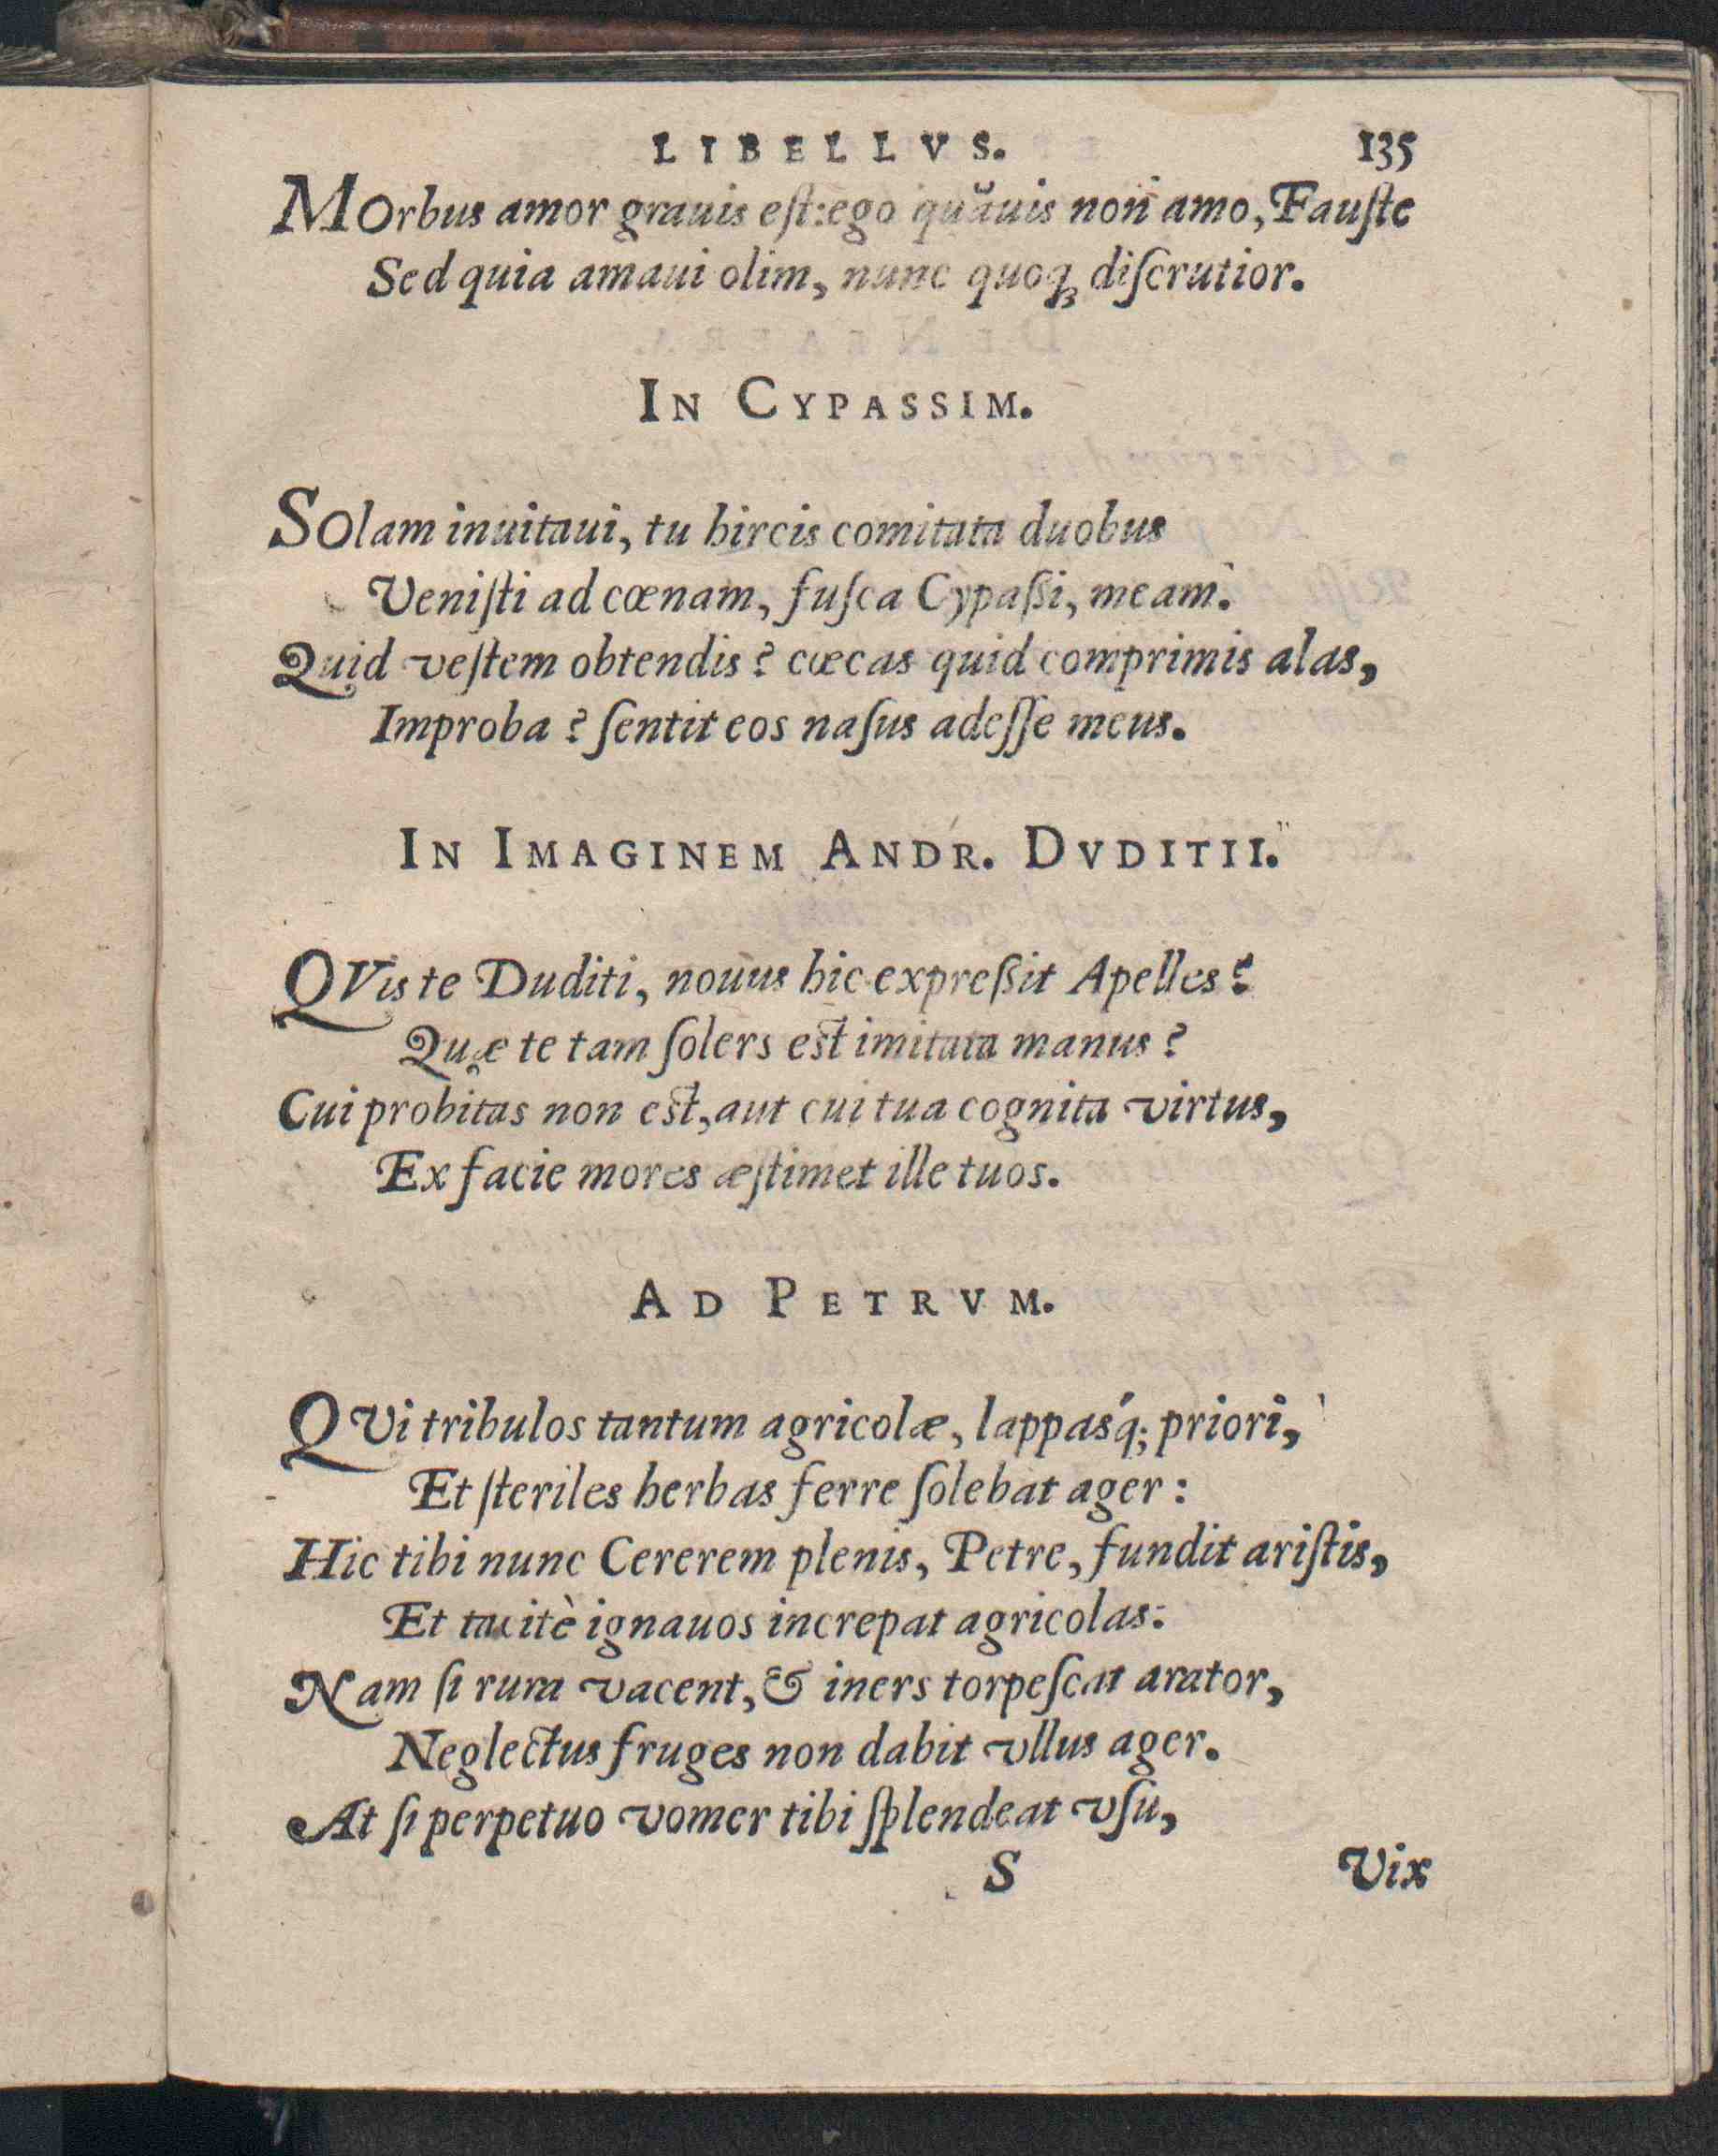 LIBELLVS. 135
MOrbus amor grauis eſt: ego quãuis non amo, Fauſte
Sed quia amaui olim, nunc quoq; diſcrutior.
IN CYPASSIM.
SOlam inuitaui, tu hircis comitata duobus
Veniſti ad cœnam, fuſca Cypaſsi, meam.
Quid veſtem obtendis? cœcas quid comprimis alas,
Improba? ſentit eos naſus adeſſe meus.
IN IMAGINEM ANDR. DVDITII.
QVis te Duditi, nouus hic expreſsit Apelles?
Quæ te tam ſolers est imitata manus?
Cui probitas non est, aut cui tua cognita virtus,
Ex facie mores æſtimet ille tuos.
AD PETRVM.
QVi tribulos tantum agricolæ, lappasq́; priori,
Et ſteriles herbas ferre ſolebat ager:
Hic tibi nunc Cererem plenis, Petre, fundit ariſtis,
Et tacitè ignauos increpat agricolas:
Nam ſi rura vacent, & iners torpeſcat arator,
Neglectus fruges non dabit vllus ager.
At ſi perpetuo vomer tibi ſplendeat vſu,
S Vix